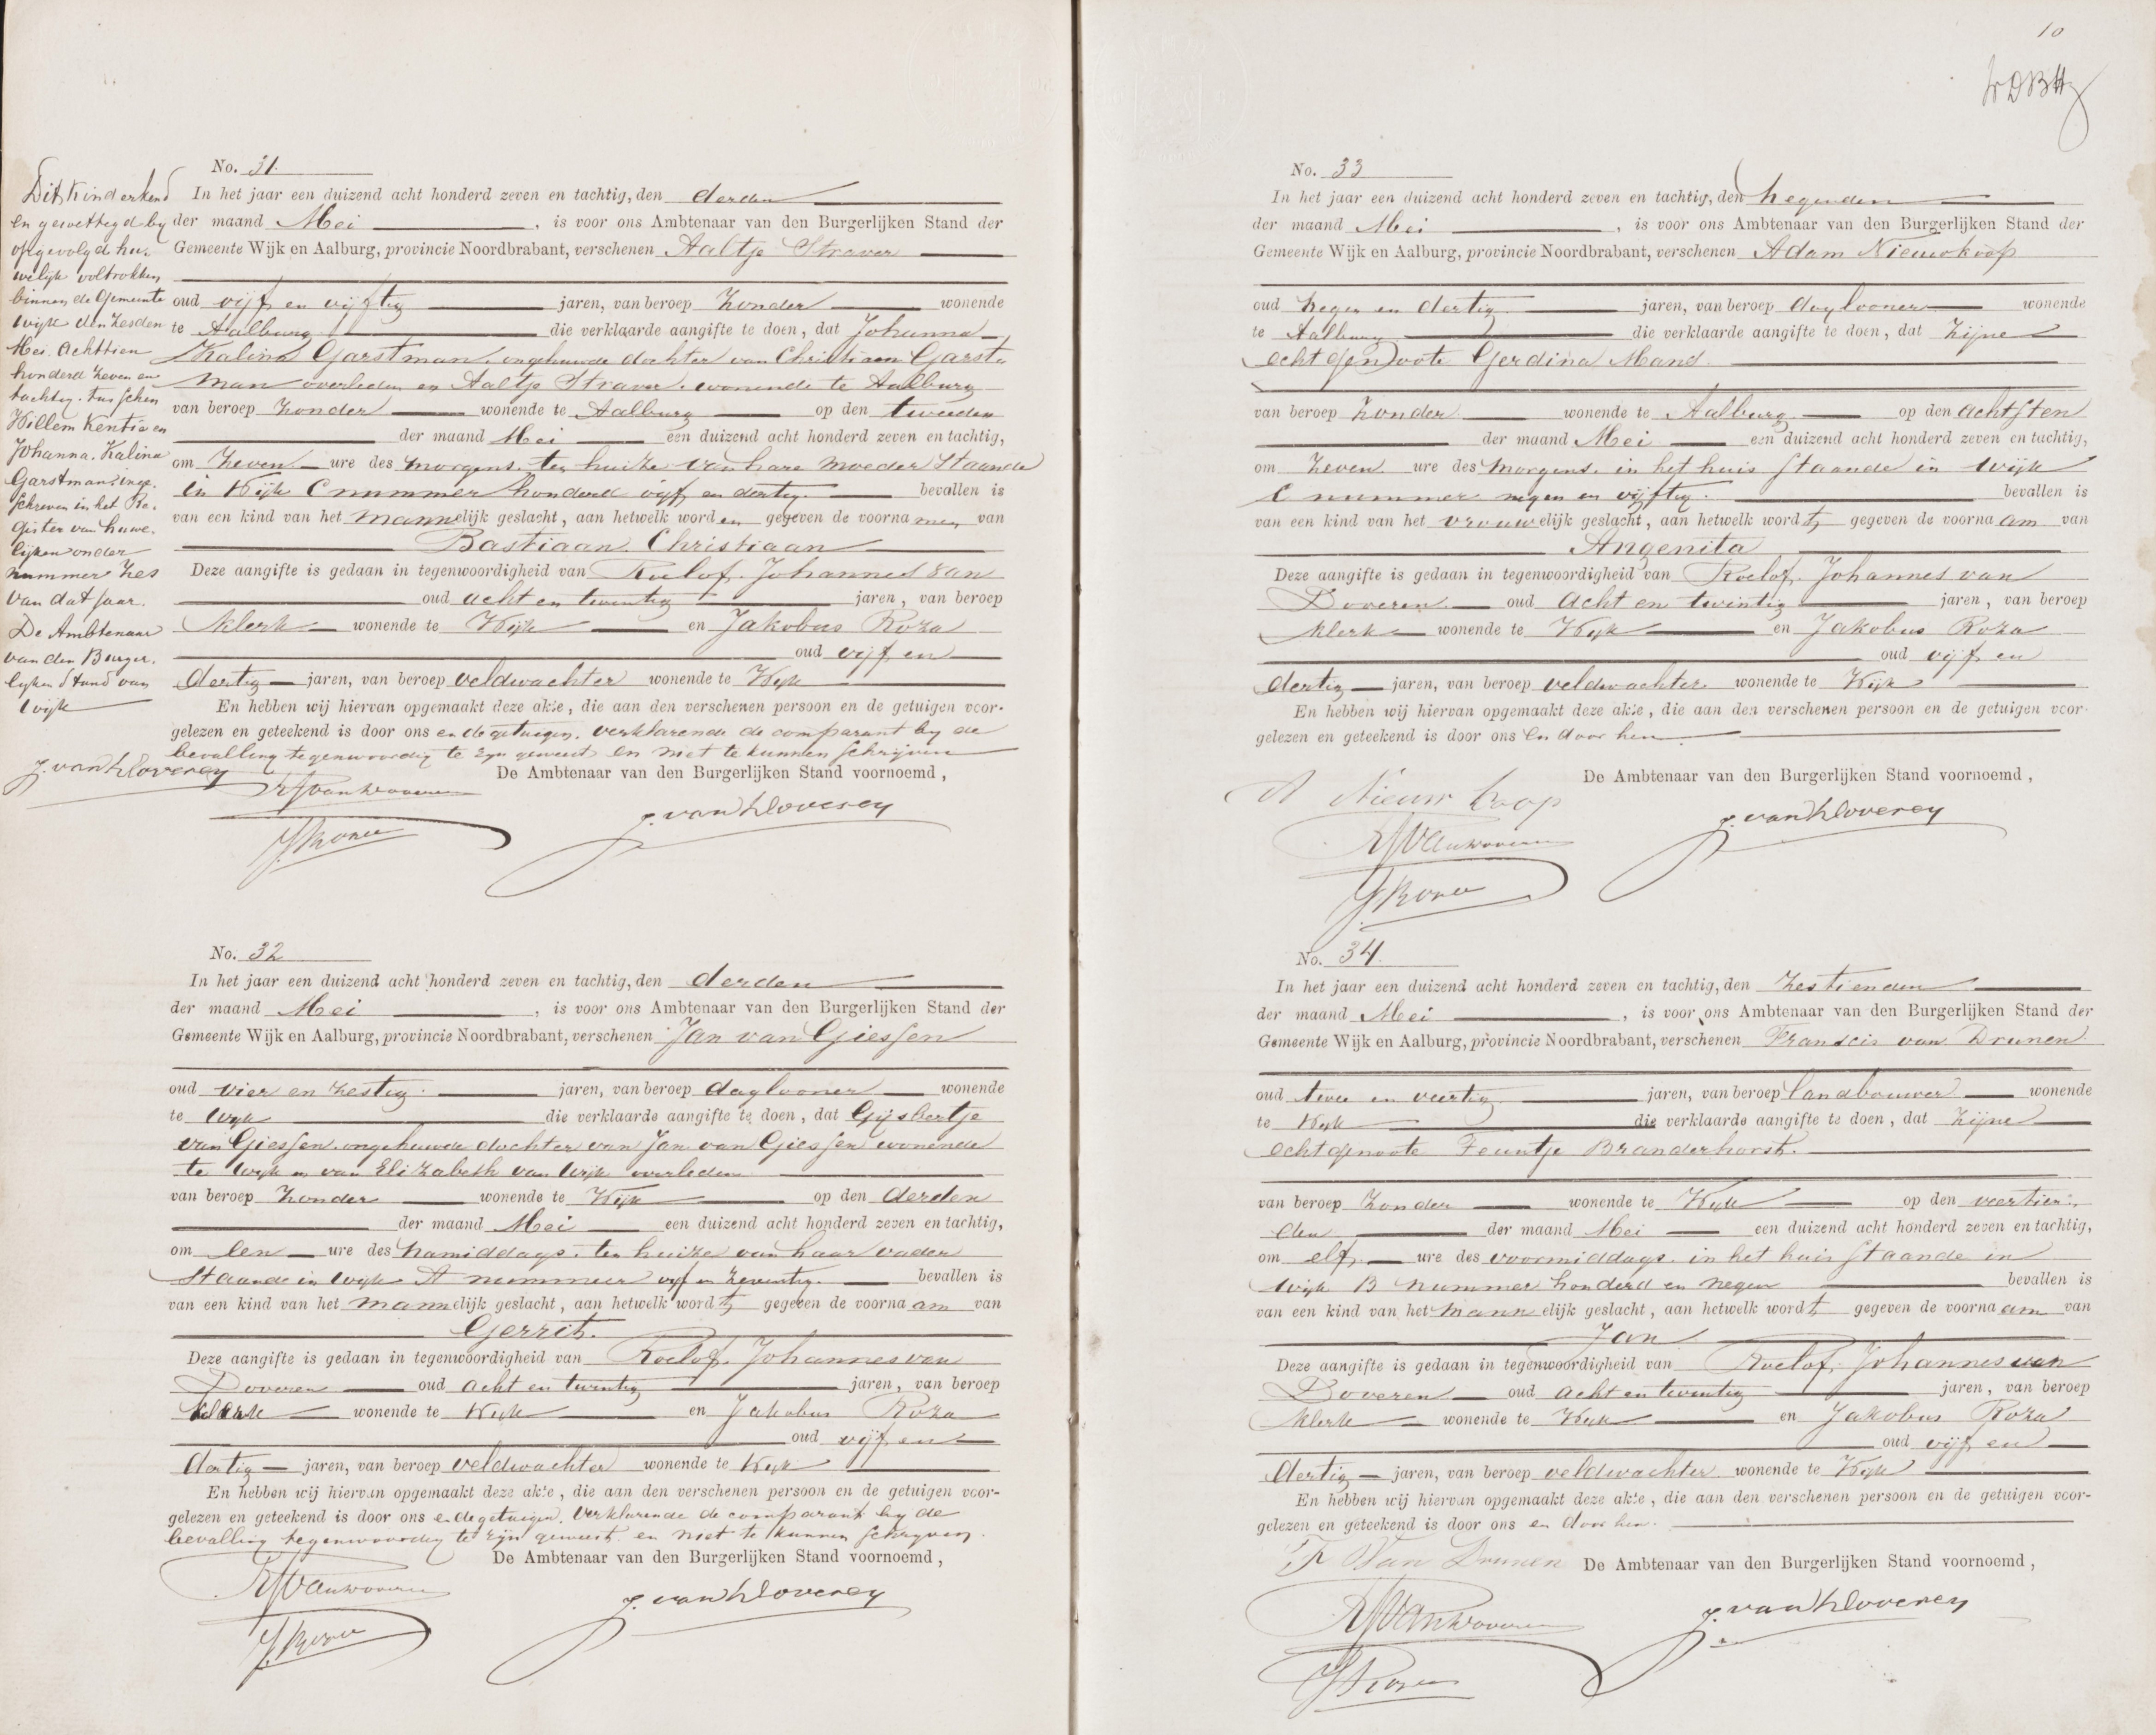 No. 31.
In het jaar een duizend acht honderd zeven en tachtig, den derden
der maand Mei, is voor ons Ambtenaar van den Burgerlijken Stand der
Gemeente Wijk en Aalburg, provincie Noordbrabant, verschenen Aaltje Straver
oud vijf en vijftig jaren, van beroep zonder wonende
te Aalburg die verklaarde aangifte te doen, dat Johanna
Kalina Garstman, ongehuwde dochter van Christiaan Garst-
man overleden en Aaltje Straver, wonende te Aalburg
van beroep zonder wonende te Aalburg op den tweeden
der maand Mei een duizend acht honderd zeven en tachtig,
om zeven ure des morgens, ten huize van hare moeder staande
in Wijk C nummer honderd vijf en dertig. bevallen is
van een kind van het mannelijk geslacht, aan hetwelk worden gegeven de voornamen van
Bastiaan Christiaan
Deze aangifte is gedaan in tegenwoordigheid van Roelof Johannes van
oud acht en twintig jaren, van beroep
klerk wonende te Wijk en Jakobus Roza
oud vijf en
dertig jaren, van beroep veldwachter wonende te Wijk
En hebben wij hiervan opgemaakt deze akte, die aan den verschenen persoon en de getuigen voor-
gelezen en geteekend is door ons en de getuigen, verklarende de comparant bij de
bevalling tegenwoordig te zijn geweest en niet te kunnen schrijven
De Ambtenaar van den Burgerlijken Stand voornoemd,
Dit kind erkend
en gewettigd bij
opgevolgd hu-
welijk voltrokken
binnen de Gemeente
Wijk den zesden
Mei achttien
honderd zeven en
tachtig tusschen
Willem Kentie en
Johanna Kalina
Garstman, inge-
schreven in het Re-
gister van huwe-
lijken onder
nummer zes
van dat jaar.
De Ambtenaar
van den Burger-
lijken Stand van
Wijk
No. 32
In het jaar een duizend acht honderd zeven en tachtig, den derden
der maand Mei, is voor ons Ambtenaar van den Burgerlijken Stand der
Gemeente Wijk en Aalburg, provincie Noordbrabant, verschenen Jan van Giessen
oud vier en zestig jaren, van beroep daglooner wonende
te Wijk die verklaarde aangifte te doen, dat Gijsbertje
van Giessen, ongehuwde dochter van Jan van Giessen wonende
te Wijk en van Elizabeth van Wijk overleden
van beroep zonder wonende te Wijk op den derden
der maand Mei een duizend acht honderd zeven en tachtig,
om een ure des namiddags, ten huize van haar vader
staande in Wijk A nummer vijf en zeventig. bevallen is
van een kind van het mannelijk geslacht, aan hetwelk wordt gegeven de voornaam van
Gerrit.
Deze aangifte is gedaan in tegenwoordigheid van Roelof Johannes van
Doveren oud acht en twintig jaren, van beroep
klerk wonende te Wijk en Jakobus Roza
oud vijf en
dertig jaren, van beroep veldwachter wonende te Wijk
En hebben wij hiervan opgemaakt deze akte, die aan den verschenen persoon en de getuigen voor-
gelezen en geteekend is door ons en de getuigen, verklarende de comparant bij de
bevalling tegenwoordig te zijn geweest en niet te kunnen schrijven.
De Ambtenaar van den Burgerlijken Stand voornoemd,
10
No. 33
In het jaar een duizend acht honderd zeven en tachtig, den negenden
der maand Mei, is voor ons Ambtenaar van den Burgerlijken Stand der
Gemeente Wijk en Aalburg, provincie Noordbrabant, verschenen Adam Nieuwkoop
oud negen en dertig jaren, van beroep daglooner wonende
te Aalburg die verklaarde aangifte te doen, dat zijne
echtgenoote Gerdina Mand
van beroep zonder wonende te Aalburg op den achtsten
der maand Mei een duizend acht honderd zeven en tachtig,
om zeven ure des morgens, in het huis staande in Wijk
C nummer negen en vijftig. bevallen is
van een kind van het vrouwelijk geslacht, aan hetwelk wordt gegeven de voornaam van
Angenita
Deze aangifte is gedaan in tegenwoordigheid van Roelof Johannes van
Doveren oud acht en twintig jaren, van beroep
klerk wonende te Wijk en Jakobus Roza
oud vijf en
dertig jaren, van beroep veldwachter wonende te Wijk
En hebben wij hiervan opgemaakt deze akte, die aan den verschenen persoon en de getuigen voor-
gelezen en geteekend is door ons en door hen
De Ambtenaar van den Burgerlijken Stand voornoemd,
A Nieuwkoop
No. 34.
In het jaar een duizend acht honderd zeven en tachtig, den zestienden
der maand Mei, is voor ons Ambtenaar van den Burgerlijken Stand der
Gemeente Wijk en Aalburg, provincie Noordbrabant, verschenen Francis van Drunen
oud twee en veertig jaren, van beroep landbouwer wonende
te Wijk die verklaarde aangifte te doen, dat zijne
echtgenoote Teuntje Branderhorst.
van beroep zonder wonende te Wijk op den veertien-
den der maand Mei een duizend acht honderd zeven en tachtig,
om elf ure des voormiddags, in het huis staande in
Wijk B nummer honderd en negen bevallen is
van een kind van het mannelijk geslacht, aan hetwelk wordt gegeven de voornaam van
Jan
Deze aangifte is gedaan in tegenwoordigheid van Roelof Johannes van
Doveren oud acht en twintig jaren, van beroep
klerk wonende te Wijk en Jakobus Roza
oud vijf en
dertig jaren, van beroep veldwachter wonende te Wijk
En hebben wij hiervan opgemaakt deze akte, die aan den verschenen persoon en de getuigen voor-
gelezen en geteekend is door ons en door hen.
F Van Drunen De Ambtenaar van den Burgerlijken Stand voornoemd,